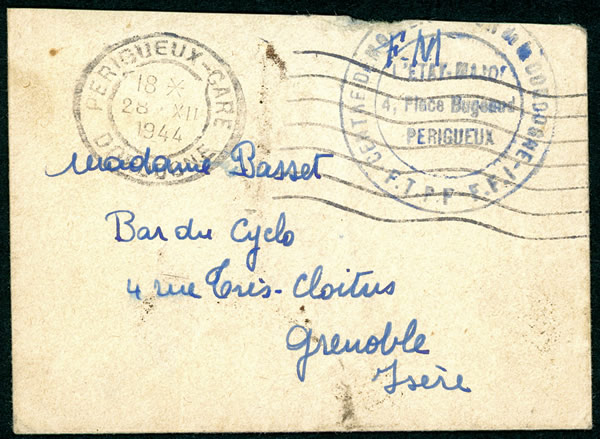 PERIGUEUX-GARE
18 X
28 XII
1944
DORDOGNE
FM
ETAT-MAJOR
4, Place Bugeaud
PERIGUEUX
DORDOGNE-
F.T.P.F F.F.I
Madame Basset
Bar du Cyclo
4 rue Très-Cloitus
Grenoble
Isère